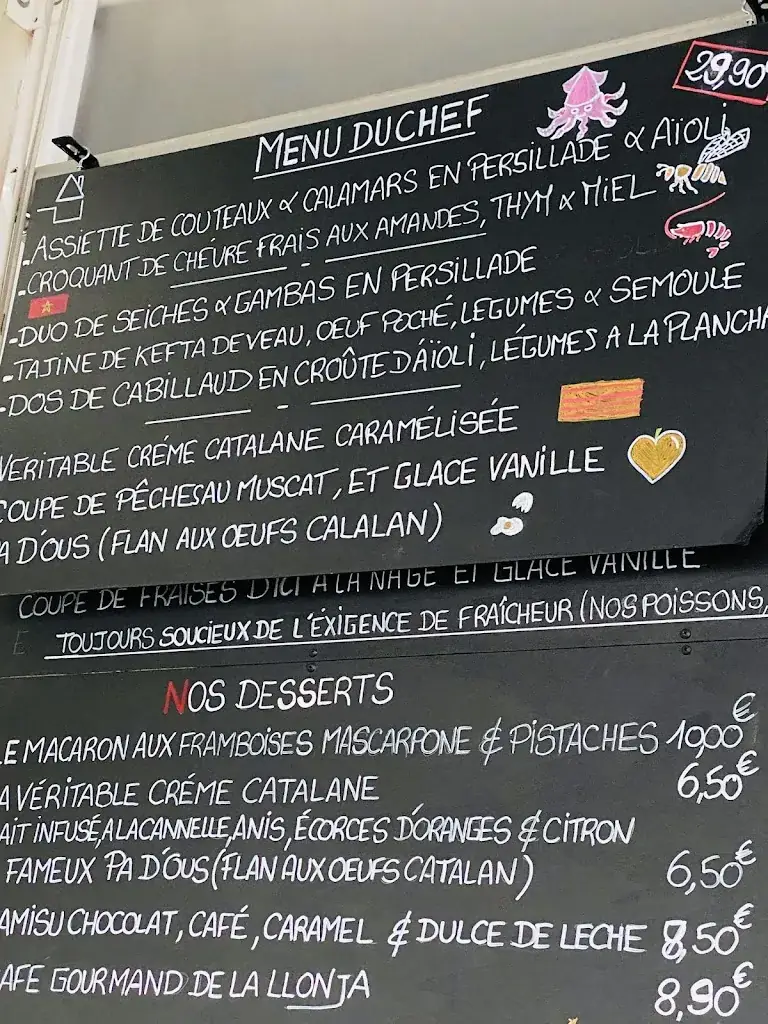 29,90
MENU DU CHEF
-ASSIETTE DE COUTEAUX & CALAMARS EN PERSILLADE & AÏOLI
-CROQUANT DE CHÉVRE FRAIS AUX AMANDES, THYM & MIEL
-DUO DE SEICHES & GAMBAS EN PERSILLADE
-TAJINE DE KEFTA DE VEAU, OEUF POCHÉ, LEGUMES & SEMOULE
-DOS DE CABILLAUD EN CROÛTE D'AÏOLI, LÉGUMES A LA PLANCHA
VERITABLE CRÉME CATALANE CARAMÉLISÉE
COUPE DE PÊCHES AU MUSCAT, ET GLACE VANILLE
A D'OUS (FLAN AUX OEUFS CALALAN)
COUPE DE FRAISES D'ICI A LA NAGE ET GLACE VANILLE
TOUJOURS SOUCIEUX DE L'ÉXIGENCE DE FRAÎCHEUR (NOS POISSONS,
NOS DESSERTS
LE MACARON AUX FRAMBOISES MASCARPONE & PISTACHES 10,00€
A VÉRITABLE CRÉME CATALANE 6,50€
AIT INFUSÉ, A LA CANNELLE, ANIS, ÉCORCES D'ORANGES & CITRON
FAMEUX PA D'OUS (FLAN AUX OEUFS CATALAN) 6,50€
AMISU CHOCOLAT, CAFÉ, CARAMEL & DULCE DE LECHE 8,50€
AFE GOURMAND DE LA LLONJA 8,90€